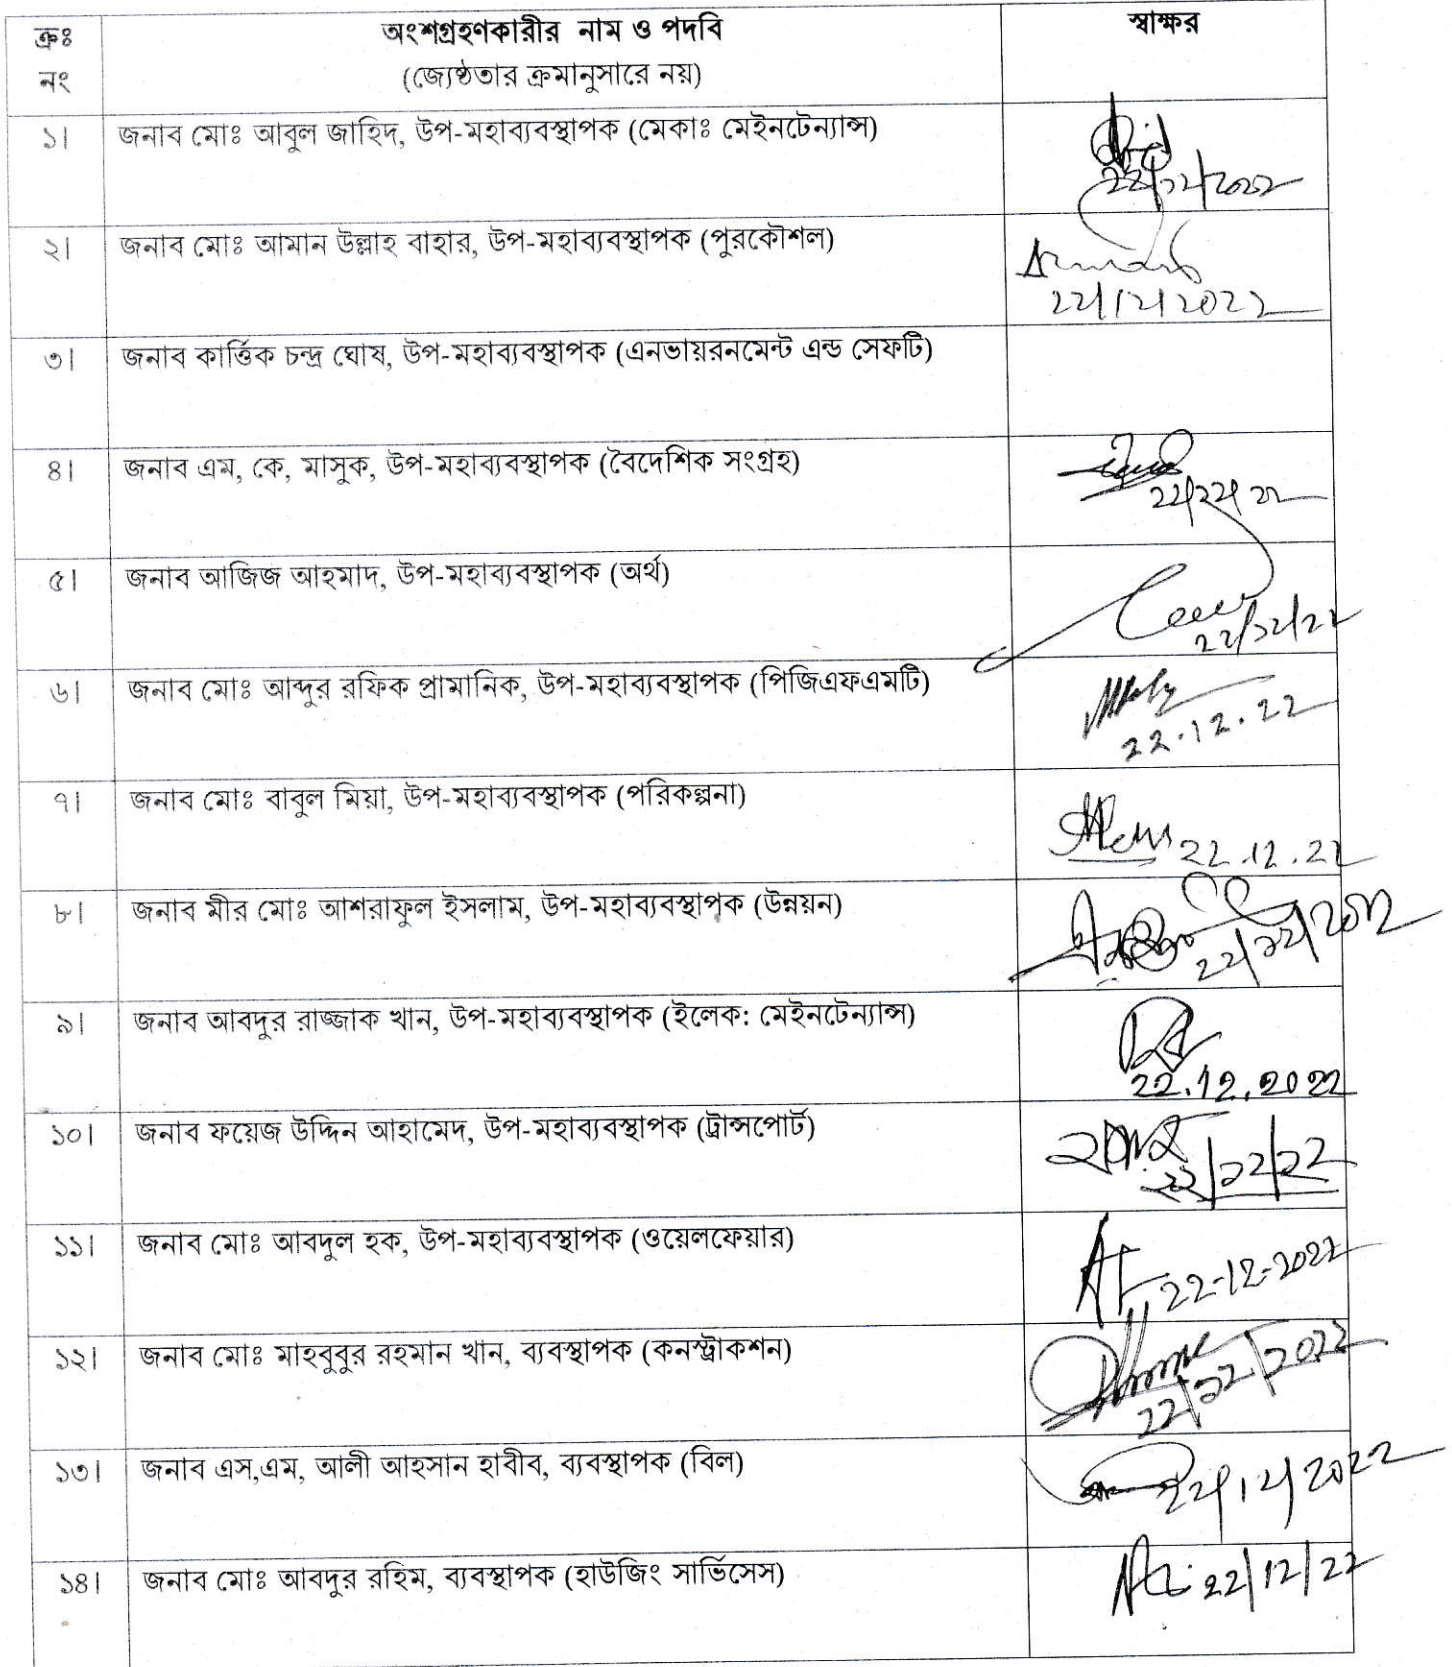 ক্রঃ নং অংশগ্রহণকারীর নাম ও পদবি স্বাক্ষর
(জ্যেষ্ঠতার ক্রমানুসারে নয়)
১। জনাব মোঃ আবুল জাহিদ, উপ-মহাব্যবস্থাপক (মেকাঃ মেইনটেন্যান্স)
22/12/2022
২। জনাব মোঃ আমান উল্লাহ বাহার, উপ-মহাব্যবস্থাপক (পুরকৌশল)
22/12/2022
৩। জনাব কার্ত্তিক চন্দ্র ঘোষ, উপ-মহাব্যবস্থাপক (এনভায়রনমেন্ট এন্ড সেফটি)
৪। জনাব এম, কে, মাসুক, উপ-মহাব্যবস্থাপক (বৈদেশিক সংগ্রহ)
৫। জনাব আজিজ আহমাদ, উপ-মহাব্যবস্থাপক (অর্থ)
২২/১২/২২
৬। জনাব মোঃ আব্দুর রফিক প্রামানিক, উপ-মহাব্যবস্থাপক (পিজিএফএমটি)
22.12.22
৭। জনাব মোঃ বাবুল মিয়া, উপ-মহাব্যবস্থাপক (পরিকল্পনা)
22.12.22
৮। জনাব মীর মোঃ আশরাফুল ইসলাম, উপ-মহাব্যবস্থাপক (উন্নয়ন)
৯। জনাব আবদুর রাজ্জাক খান, উপ-মহাব্যবস্থাপক (ইলেক: মেইনটেন্যান্স)
22.12.2022
১০। জনাব ফয়েজ উদ্দিন আহামেদ, উপ-মহাব্যবস্থাপক (ট্রান্সপোর্ট)
২২/১২/২২
১১। জনাব মোঃ আবদুল হক, উপ-মহাব্যবস্থাপক (ওয়েলফেয়ার)
22-12-2022
১২। জনাব মোঃ মাহবুবুর রহমান খান, ব্যবস্থাপক (কনস্ট্রাকশন)
১৩। জনাব এস,এম, আলী আহসান হাবীব, ব্যবস্থাপক (বিল)
22/12/2022
১৪। জনাব মোঃ আবদুর রহিম, ব্যবস্থাপক (হাউজিং সার্ভিসেস)
22/12/22